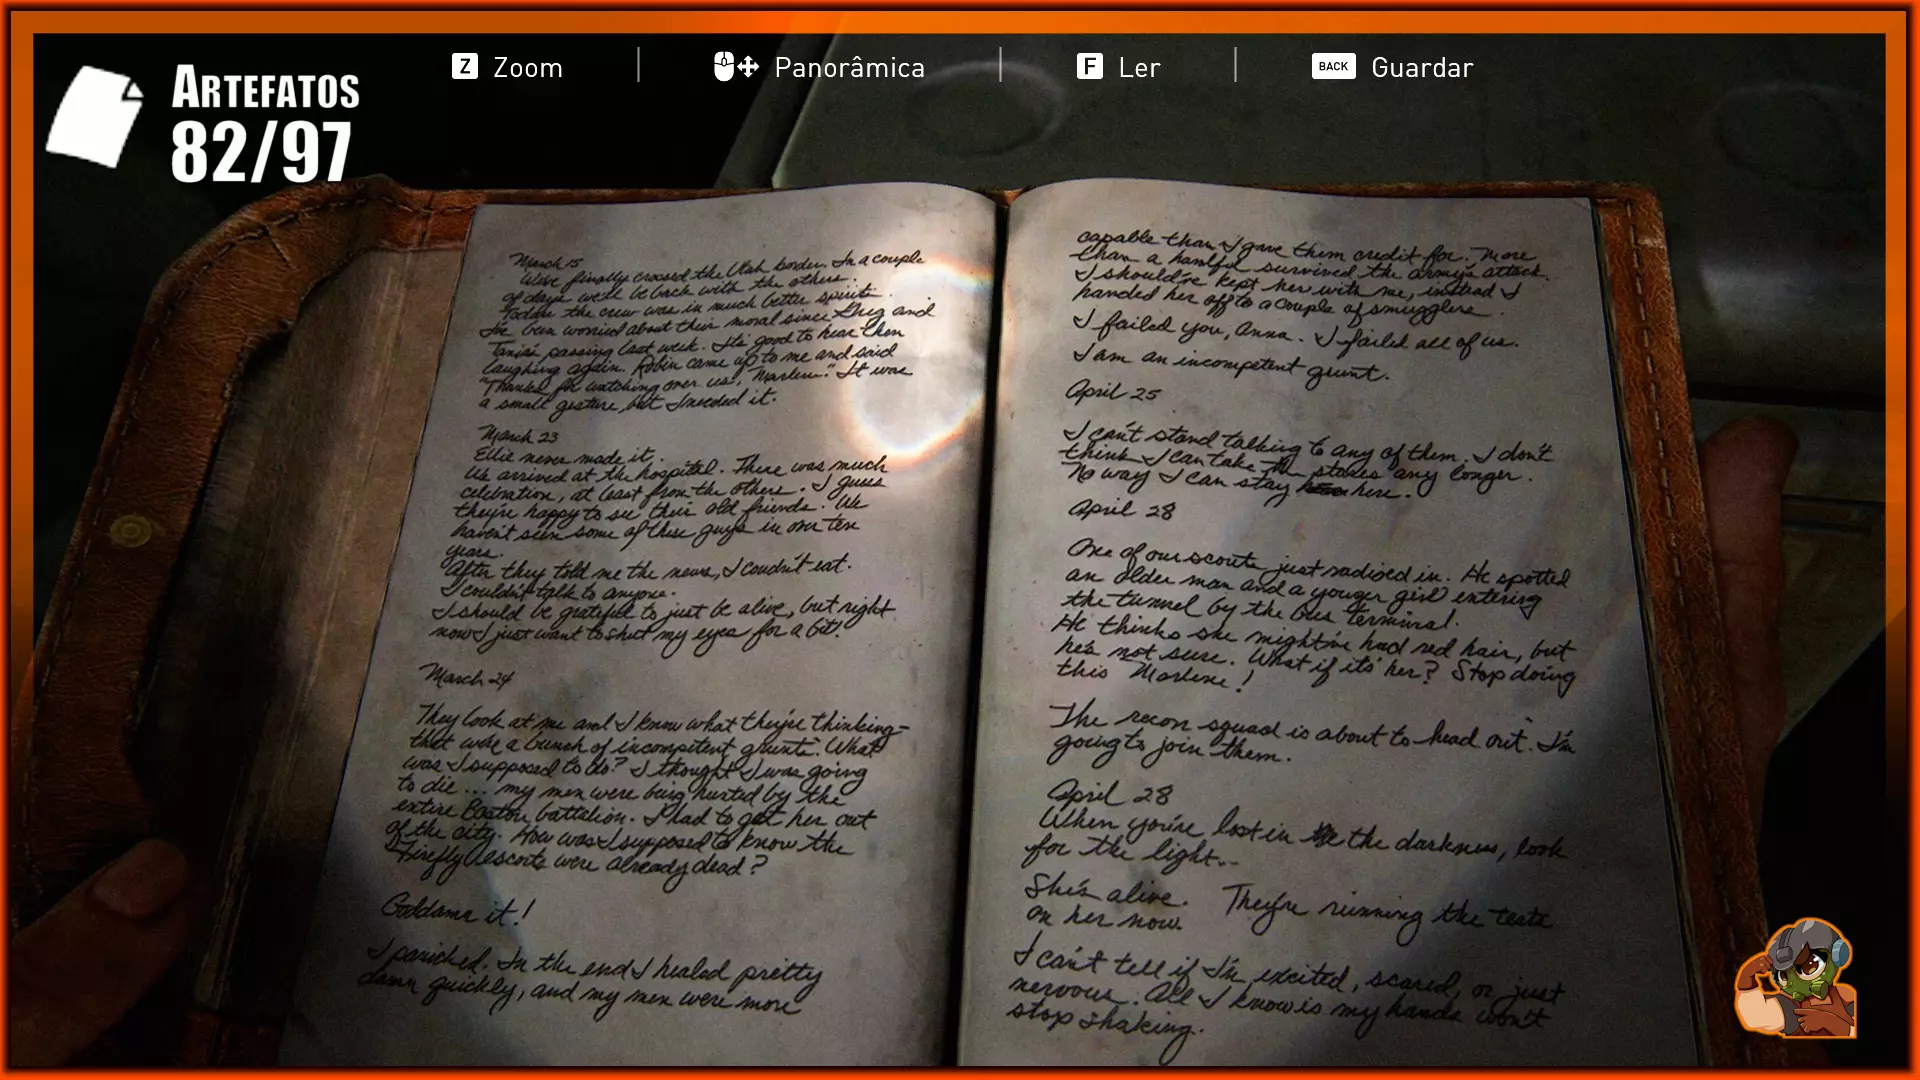 ARTEFATOS
82/97
Z Zoom
Panorâmica
F Ler
BACK Guardar
March 15
We've finally crossed the Utah border. In a couple
of days we'll be back with the others.
Today the crew was in much better spirits.
I've been worried about their moral since Greg and
Tania's passing last week. It's good to hear them
laughing again. Robin came up to me and said
"Thanks for watching over us, Marlene." It was
a small gesture, but I needed it.
March 23
Ellie never made it.
We arrived at the hospital. There was much
celebration, at least from the others. I guess
they're happy to see their old friends. We
haven't seen some of these guys in over ten
years.
After they told me the news, I coudn't eat.
I couldn't talk to anyone.
I should be grateful to just be alive, but right
now I just want to shut my eyes for a bit.
March 24
They look at me and I know what they're thinking-
that we're a bunch of incompitent grunts. What
was I supposed to do? I thought I was going
to die... my men were being hunted by the
entire Boston battalion. I had to get her out
of the city. How was I supposed to know the
Firefly escorts were already dead?
Goddamn it!
I panicked. In the end I healed pretty
damn quickly, and my men were more
capable than I gave them credit for. More
than a handful survived the army's attack.
I should've kept her with me, instead I
handed her off to a couple of smugglers.
I failed you, Anna. I failed all of us.
I am an incompetent grunt.
April 25
I can't stand talking to any of them. I don't
think I can take the stares any longer.
No way I can stay here.
April 28
One of our scouts just radioed in. He spotted
an older man and a younger girl entering
the tunnel by the bus terminal.
He thinks she might've had red hair, but
he's not sure. What if it's her? Stop doing
this Marlene!
The recon squad is about to head out. I'm
going to join them.
April 28
When you're lost in the darkness, look
for the light...
She's alive. They're running the tests
on her now.
I can't tell if I'm excited, scared, or just
nervous. All I know is my hands won't
stop shaking.